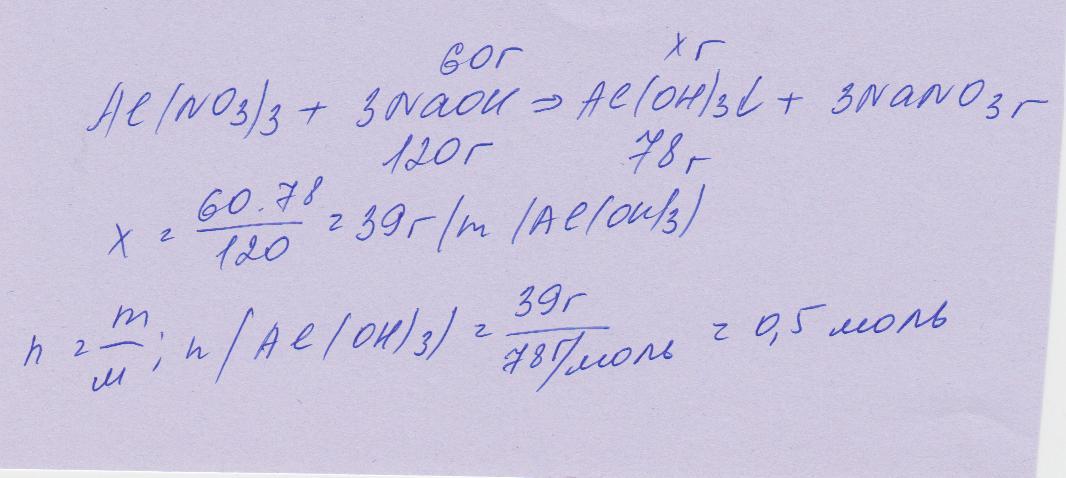 60г xг
Al(NO3)3 + 3NaOH => Al(OH)3↓ + 3NaNO3г
120г 78г
x = 60.78/120 = 39г (m (Al(OH)3)
n = m/м; n (Al(OH)3) = 39г/78г/моль = 0,5 моль